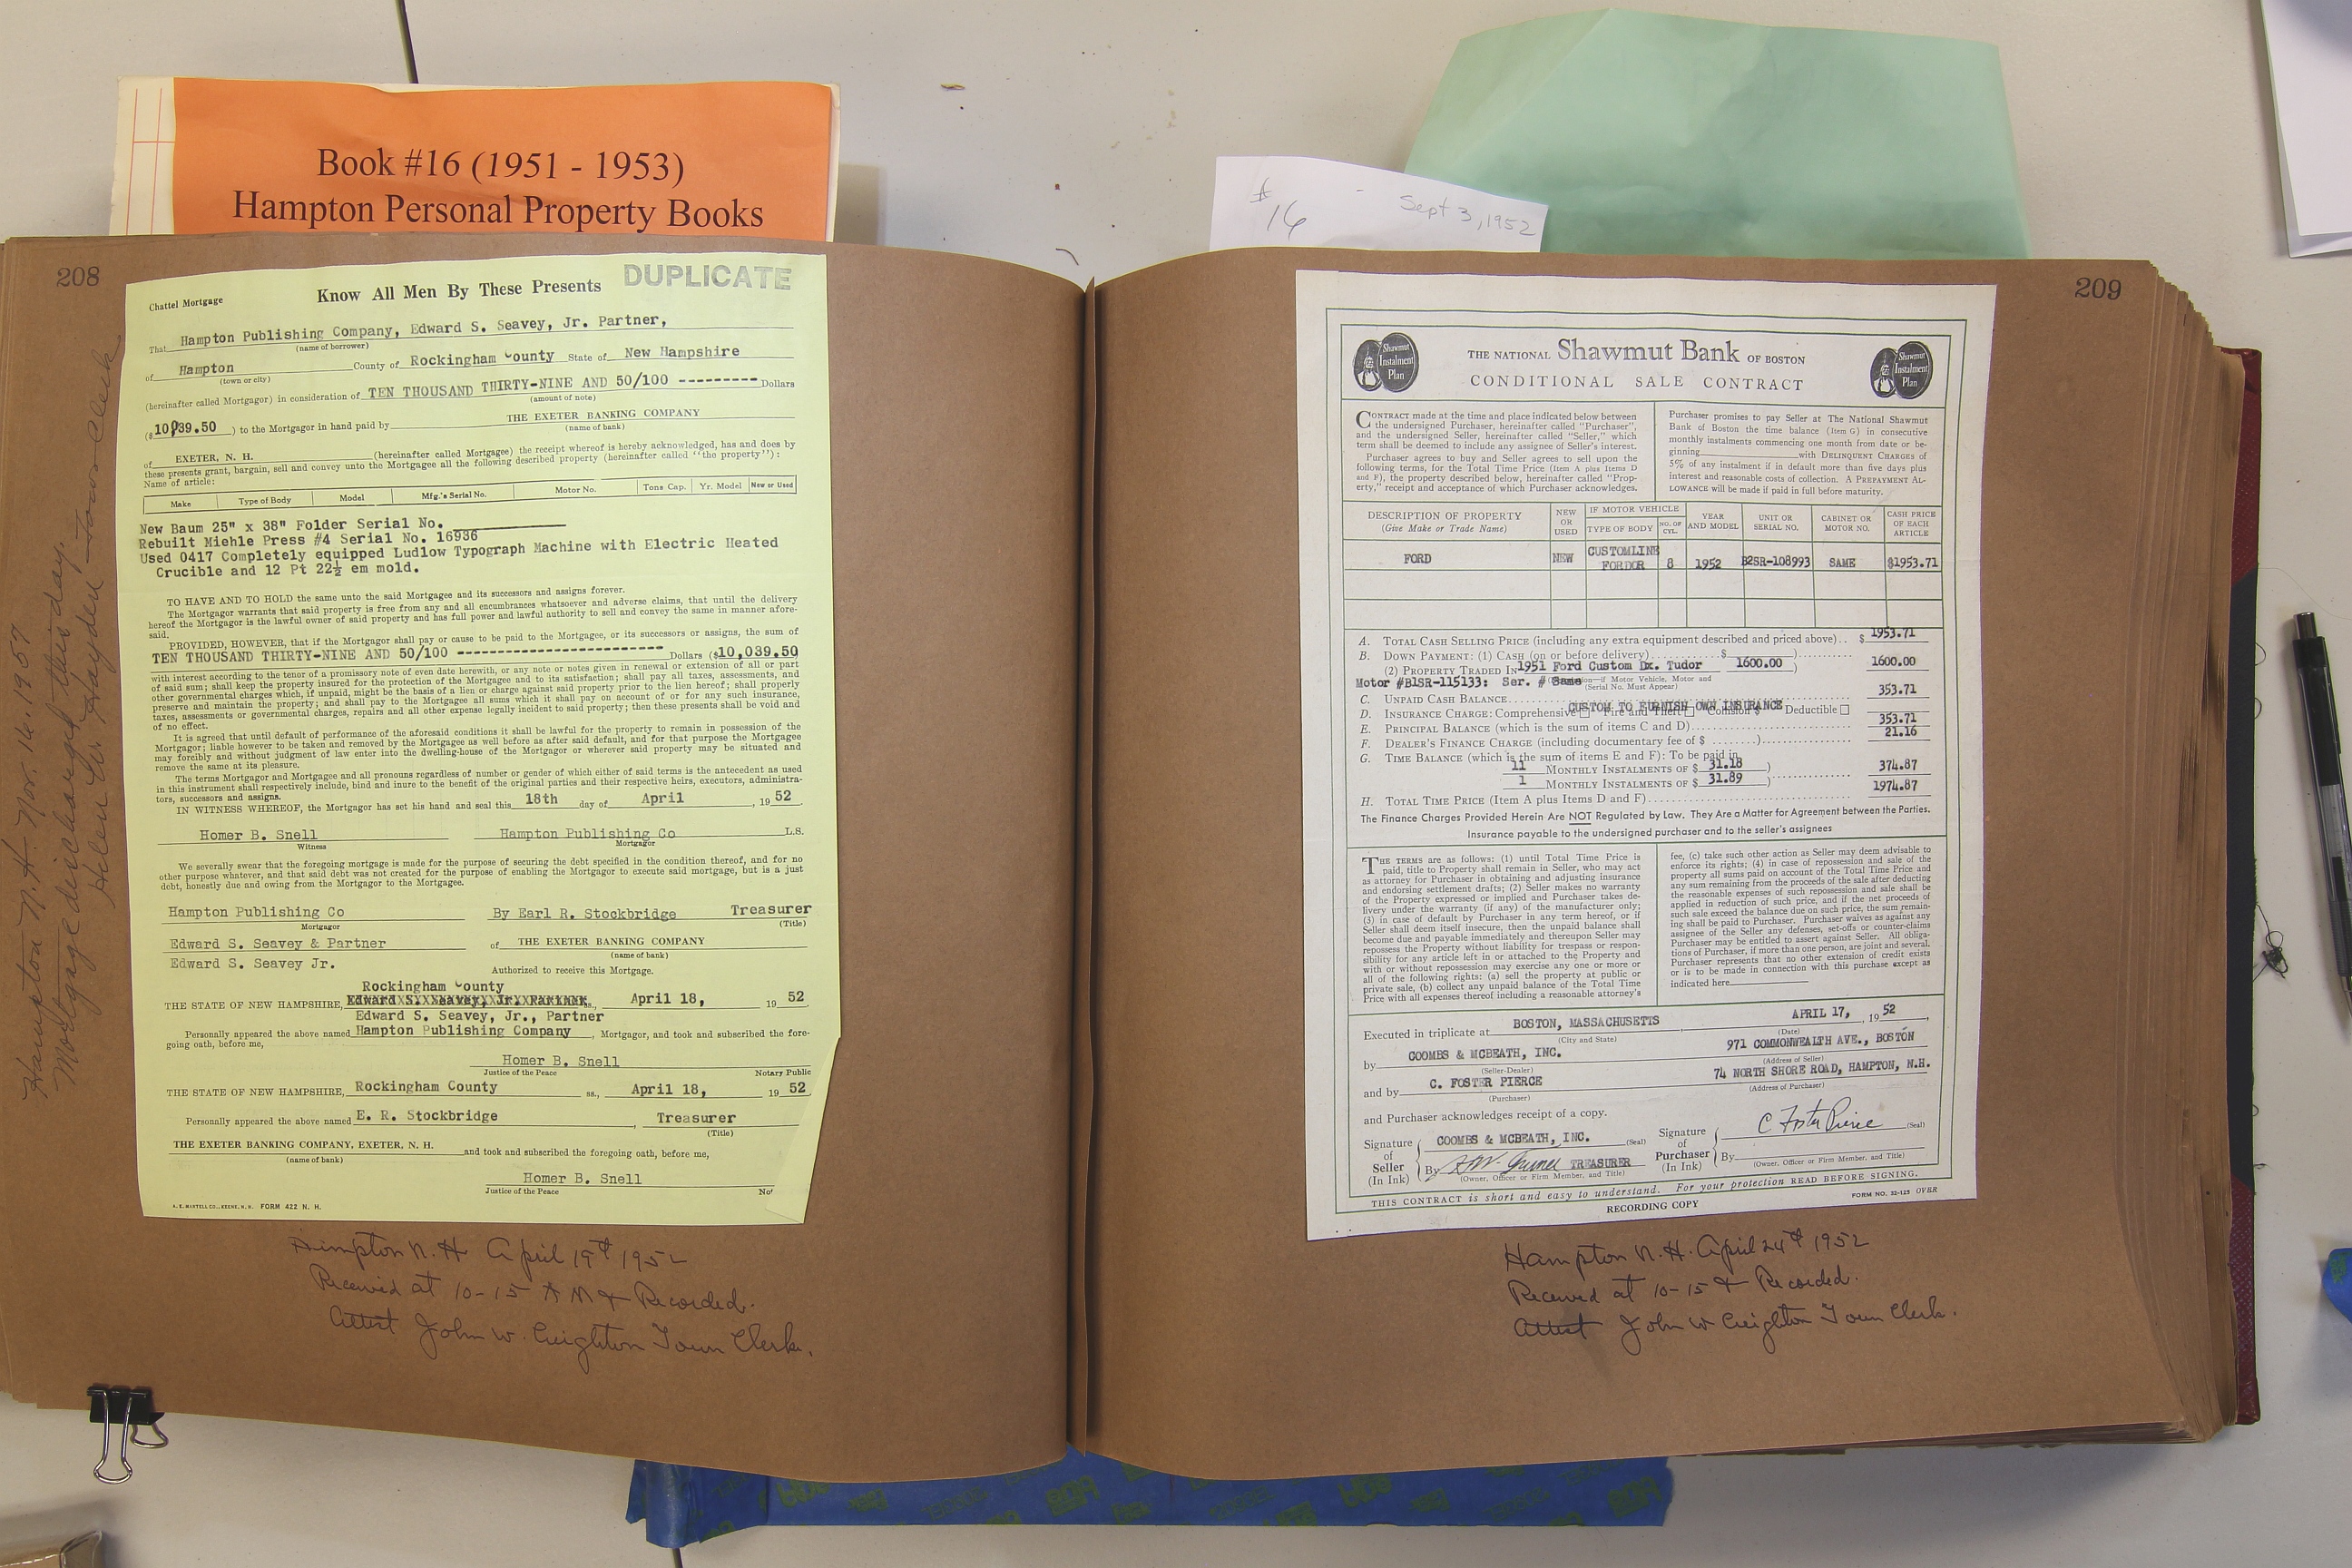 Book #16 (1951 - 1953)
Hampton Personal Property Books
# 16 - Sept 3, 1952
208
DUPLICATE
Chattel Mortgage
Know All Men By These Presents
That Hampton Publishing Company, Edward S. Seavey, Jr. Partner,
(name of borrower)
of Hampton County of Rockingham County State of New Hampshire
(town or city)
(hereinafter called Mortgagor) in consideration of TEN THOUSAND THIRTY-NINE AND 50/100 --------- Dollars
(amount of note)
($ 10,039.50 ) to the Mortgagor in hand paid by THE EXETER BANKING COMPANY
(name of bank)
of EXETER, N. H. (hereinafter called Mortgagee) the receipt whereof is hereby acknowledged, has and does by
these presents grant, bargain, sell and convey unto the Mortgagee all the following described property (hereinafter called "the property"):
Name of article:
Make Type of Body Model Mfg.'s Serial No. Motor No. Tons Cap. Yr. Model New or Used
New Baum 25" x 38" Folder Serial No.
Rebuilt Miehle Press #4 Serial No. 16936
Used 0417 Completely equipped Ludlow Typograph Machine with Electric Heated
Crucible and 12 Pt 22½ em mold.
TO HAVE AND TO HOLD the same unto the said Mortgagee and its successors and assigns forever.
The Mortgagor warrants that said property is free from any and all encumbrances whatsoever and adverse claims, that until the delivery
hereof the Mortgagor is the lawful owner of said property and has full power and lawful authority to sell and convey the same in manner afore-
said.
PROVIDED, HOWEVER, that if the Mortgagor shall pay or cause to be paid to the Mortgagee, or its successors or assigns, the sum of
TEN THOUSAND THIRTY-NINE AND 50/100 ------------------------ Dollars ($10,039.50
with interest according to the tenor of a promissory note of even date herewith, or any note or notes given in renewal or extension of all or part
of said sum; shall keep the property insured for the protection of the Mortgagee and to its satisfaction; shall pay all taxes, assessments, and
other governmental charges which, if unpaid, might be the basis of a lien or charge against said property prior to the lien hereof; shall properly
preserve and maintain the property; and shall pay to the Mortgagee all sums which it shall pay on account of or for any such insurance,
taxes, assessments or governmental charges, repairs and all other expense legally incident to said property; then these presents shall be void and
of no effect.
It is agreed that until default of performance of the aforesaid conditions it shall be lawful for the property to remain in possession of the
Mortgagor; liable however to be taken and removed by the Mortgagee as well before as after said default, and for that purpose the Mortgagee
may forcibly and without judgment of law enter into the dwelling-house of the Mortgagor or wherever said property may be situated and
remove the same at its pleasure.
The terms Mortgagor and Mortgagee and all pronouns regardless of number or gender of which either of said terms is the antecedent as used
in this instrument shall respectively include, bind and inure to the benefit of the original parties and their respective heirs, executors, administra-
tors, successors and assigns.
IN WITNESS WHEREOF, the Mortgagor has set his hand and seal this 18th day of April , 19 52.
Homer B. Snell Hampton Publishing Co L.S.
Witness Mortgagor
We severally swear that the foregoing mortgage is made for the purpose of securing the debt specified in the condition thereof, and for no
other purpose whatever, and that said debt was not created for the purpose of enabling the Mortgagor to execute said mortgage, but is a just
debt, honestly due and owing from the Mortgagor to the Mortgagee.
Hampton Publishing Co By Earl R. Stockbridge Treasurer
Mortgagor (Title)
Edward S. Seavey & Partner of THE EXETER BANKING COMPANY
(name of bank)
Edward S. Seavey Jr. Authorized to receive this Mortgage.
Rockingham County
THE STATE OF NEW HAMPSHIRE, Edward S. Seavey, Jr. Partner ss., April 18, 19 52
Edward S. Seavey, Jr., Partner
Personally appeared the above named Hampton Publishing Company , Mortgagor, and took and subscribed the fore-
going oath, before me,
Homer B. Snell
Justice of the Peace Notary Public
THE STATE OF NEW HAMPSHIRE, Rockingham County ss., April 18, 19 52
Personally appeared the above named E. R. Stockbridge , Treasurer
(Title)
THE EXETER BANKING COMPANY, EXETER, N. H. and took and subscribed the foregoing oath, before me,
(name of bank)
Homer B. Snell
Justice of the Peace No
A. E. MARTELL CO., KEENE, N. H. FORM 422 N. H.
Hampton N. H April 19th 1952
Received at 10-15 A M & Recorded.
Attest John W. Creighton Town Clerk.
Hampton N. H. Nov. 16, 1957
Mortgage discharged this day.
Helen W. Hayden Town Clerk
209
Shawmut Instalment Plan
THE NATIONAL Shawmut Bank OF BOSTON
CONDITIONAL SALE CONTRACT
Shawmut Instalment Plan
CONTRACT made at the time and place indicated below between
the undersigned Purchaser, hereinafter called "Purchaser",
and the undersigned Seller, hereinafter called "Seller," which
term shall be deemed to include any assignee of Seller's interest.
Purchaser agrees to buy and Seller agrees to sell upon the
following terms, for the Total Time Price (Item A plus Items D
and F), the property described below, hereinafter called "Prop-
erty," receipt and acceptance of which Purchaser acknowledges.
Purchaser promises to pay Seller at The National Shawmut
Bank of Boston the time balance (Item G) in consecutive
monthly instalments commencing one month from date or be-
ginning with DELINQUENT CHARGES of
5% of any instalment if in default more than five days plus
interest and reasonable costs of collection. A PREPAYMENT AL-
LOWANCE will be made if paid in full before maturity.
DESCRIPTION OF PROPERTY (Give Make or Trade Name) NEW OR USED IF MOTOR VEHICLE TYPE OF BODY NO. OF CYL. YEAR AND MODEL UNIT OR SERIAL NO. CABINET OR MOTOR NO. CASH PRICE OF EACH ARTICLE
FORD NEW CUSTOMLINE FORDOR 8 1952 B2SR-108993 SAME $1953.71
A. TOTAL CASH SELLING PRICE (including any extra equipment described and priced above).. $ 1953.71
B. DOWN PAYMENT: (1) CASH (on or before delivery) $ )
(2) PROPERTY TRADED IN 1951 Ford Custom Dx. Tudor 1600.00 ) 1600.00
Motor #B1SR-115133: Ser. # Same
(Description—if Motor Vehicle, Motor and
(Serial No. Must Appear)
C. UNPAID CASH BALANCE 353.71
D. INSURANCE CHARGE: Comprehensive Fire and Theft Collision $ Deductible
CUSTOM TO FURNISH OWN INSURANCE
E. PRINCIPAL BALANCE (which is the sum of items C and D) 353.71
F. DEALER'S FINANCE CHARGE (including documentary fee of $ ........) 21.16
G. TIME BALANCE (which is the sum of items E and F): To be paid in
11 MONTHLY INSTALMENTS OF $ 31.18 ) 374.87
1 MONTHLY INSTALMENTS OF $ 31.89 )
H. TOTAL TIME PRICE (Item A plus Items D and F) 1974.87
The Finance Charges Provided Herein Are NOT Regulated by Law. They Are a Matter for Agreement between the Parties.
Insurance payable to the undersigned purchaser and to the seller's assignees
THE TERMS are as follows: (1) until Total Time Price is
paid, title to Property shall remain in Seller, who may act
as attorney for Purchaser in obtaining and adjusting insurance
and endorsing settlement drafts; (2) Seller makes no warranty
of the Property expressed or implied and Purchaser takes de-
livery under the warranty (if any) of the manufacturer only;
(3) in case of default by Purchaser in any term hereof, or if
Seller shall deem itself insecure, then the unpaid balance shall
become due and payable immediately and thereupon Seller may
repossess the Property without liability for trespass or respon-
sibility for any article left in or attached to the Property and
with or without repossession may exercise any one or more or
all of the following rights: (a) sell the property at public or
private sale, (b) collect any unpaid balance of the Total Time
Price with all expenses thereof including a reasonable attorney's
fee, (c) take such other action as Seller may deem advisable to
enforce its rights; (4) in case of repossession and sale of the
property all sums paid on account of the Total Time Price and
any sum remaining from the proceeds of the sale after deducting
the reasonable expenses of such repossession and sale shall be
applied in reduction of such price, and if the net proceeds of
such sale exceed the balance due on such price, the sum remain-
ing shall be paid to Purchaser. Purchaser waives as against any
assignee of the Seller any defenses, set-offs or counter-claims
Purchaser may be entitled to assert against Seller. All obliga-
tions of Purchaser, if more than one person, are joint and several.
Purchaser represents that no other extension of credit exists
or is to be made in connection with this purchase except as
indicated here
Executed in triplicate at BOSTON, MASSACHUSETTS , APRIL 17, , 19 52
(City and State) (Date)
by COOMBS & MCBEATH, INC. 971 COMMONWEALTH AVE., BOSTON
(Seller-Dealer) (Address of Seller)
and by C. FOSTER PIERCE 74 NORTH SHORE ROAD, HAMPTON, N.H.
(Purchaser) (Address of Purchaser)
and Purchaser acknowledges receipt of a copy.
Signature of Seller (In Ink) COOMBS & MCBEATH, INC. (Seal)
By TREASURER
(Owner, Officer or Firm Member, and Title)
Signature of Purchaser (In Ink) C Foster Pierce (Seal)
By
(Owner, Officer or Firm Member, and Title)
THIS CONTRACT is short and easy to understand. For your protection READ BEFORE SIGNING.
RECORDING COPY FORM NO. 32-125 OVER
Hampton N. H. April 24th 1952
Received at 10-15 & Recorded.
Attest John W Creighton Town Clerk.